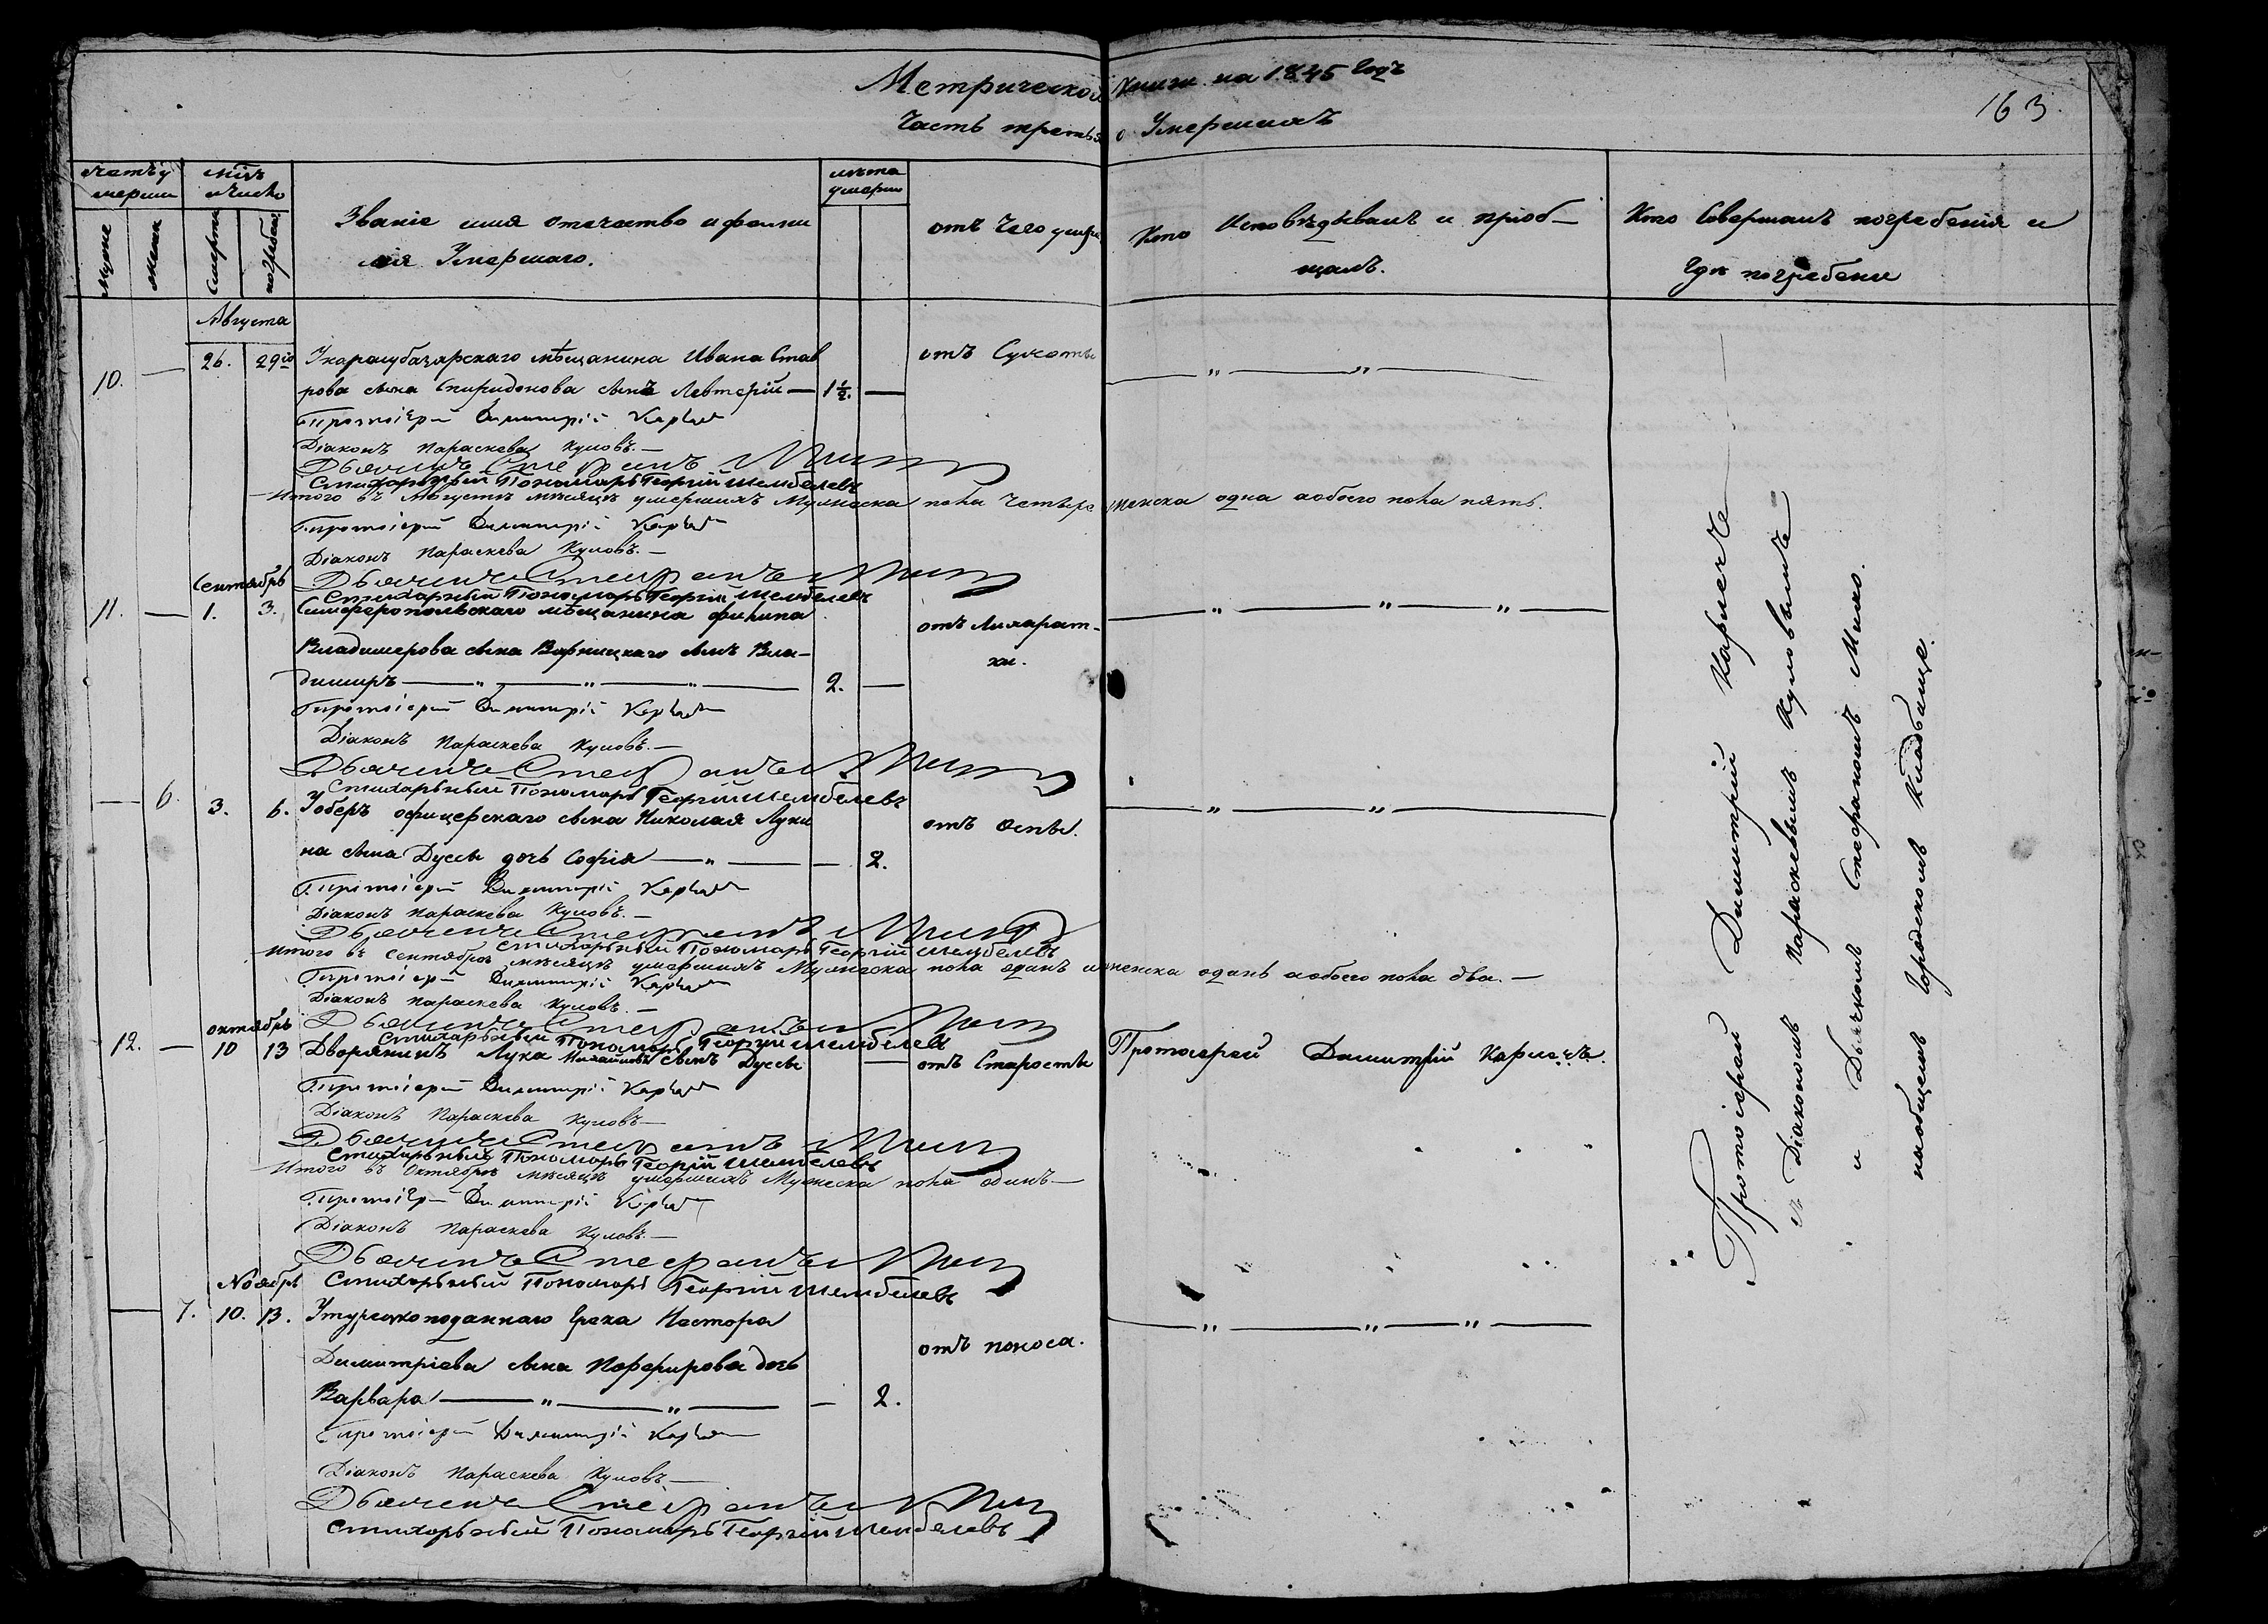 Метрической книги на 1845 годъ
Часть третья о Умершихъ
163.
Счетъ у
мершихъ
Муже
Женск
мѣсъ
и число
Смерти
погребен
Званіе имя отечество и фами
лія Умершаго.
лѣта
умерш
отъ чего умер
Кто Исповѣдывалъ и пріоб-
щалъ.
Кто Совершалъ погребенія и
гдѣ погребены
Августа
10. — 26. 29го Укарасубазарскаго мѣщанина Ивана Став отъ Сухоты
рова сына Спиридонова сынъ Левтерій — 1½. —
Протоіерей Димитрій
Діаконъ Параскева Кумовъ. —
Дьячикъ Стефанъ
Стихарный Пономарь Георгій Шембелевъ
Итого въ Августѣ мѣсяцѣ умершихъ Мужеска пола четыре женска одна а обоего пола пять.
Протоіерей Димитрій
Діаконъ Параскева Кумовъ. —
Дьячикъ Стефанъ
Стихарный Пономарь Георгій Шембелевъ
Сентябрь
11. — 1. 3. Симферопольскаго мѣщанина Филипа отъ Лихарат-
Владимерова сына Варницкаго сынъ Вла- хи.
димиръ — 2. —
Протоіерей Димитрій
Діаконъ Параскева Кумовъ. —
Дьячикъ Стефанъ
Стихарный Пономарь Георгій Шембелевъ
— 6. 3. 6. Уоберъ офицерскаго сына Николая Луки отъ Оспы.
на сына Дуссы дочь Софія — " — 2.
Протоіерей Димитрій
Діаконъ Параскева Кумовъ. —
Дьячикъ Стефанъ
Стихарный Пономарь Георгій Шембелевъ
Итого въ Сентябрѣ мѣсяцѣ умершихъ Мужеска пола одинъ и женска одинъ а обоего пола два. —
Протоіерей Димитрій
Діаконъ Параскева Кумовъ. —
Дьячикъ Стефанъ
Стихарный Пономарь Георгій Шембелевъ
октябрь
12. — 10 13 Дворянинъ Лука Михайловъ сынъ Дуссы — отъ Старости Протоіерей Димитрій Карпечъ.
Протоіерей Димитрій
Діаконъ Параскева Кумовъ —
Дьячикъ Стефанъ
Стихарный Пономарь Георгій Шембелевъ
Итого въ Октябрѣ мѣсяцѣ умершихъ Мужеска пола одинъ —
Протоіерей Димитрій
Діаконъ Параскева Кумовъ. —
Дьячикъ Стефанъ
Ноябрь Стихарный Пономарь Георгій Шембелевъ
— 7. 10. 13. Утурецкоподаннаго Грека Нестора отъ поноса.
Димитріева сына Порфирова дочь
Варвара — " — " — 2.
Протоіерей Димитрій
Діаконъ Параскева Кумовъ —
Дьячикъ Стефанъ
Стихарный Пономарь Георгій Шембелевъ
Протоіерей Димитрій Карпечъ
съ Діакономъ Параскевымъ Кумовымъ
и Дьячкомъ Стефаномъ Мило.
наобщемъ Городскомъ Кладбище.